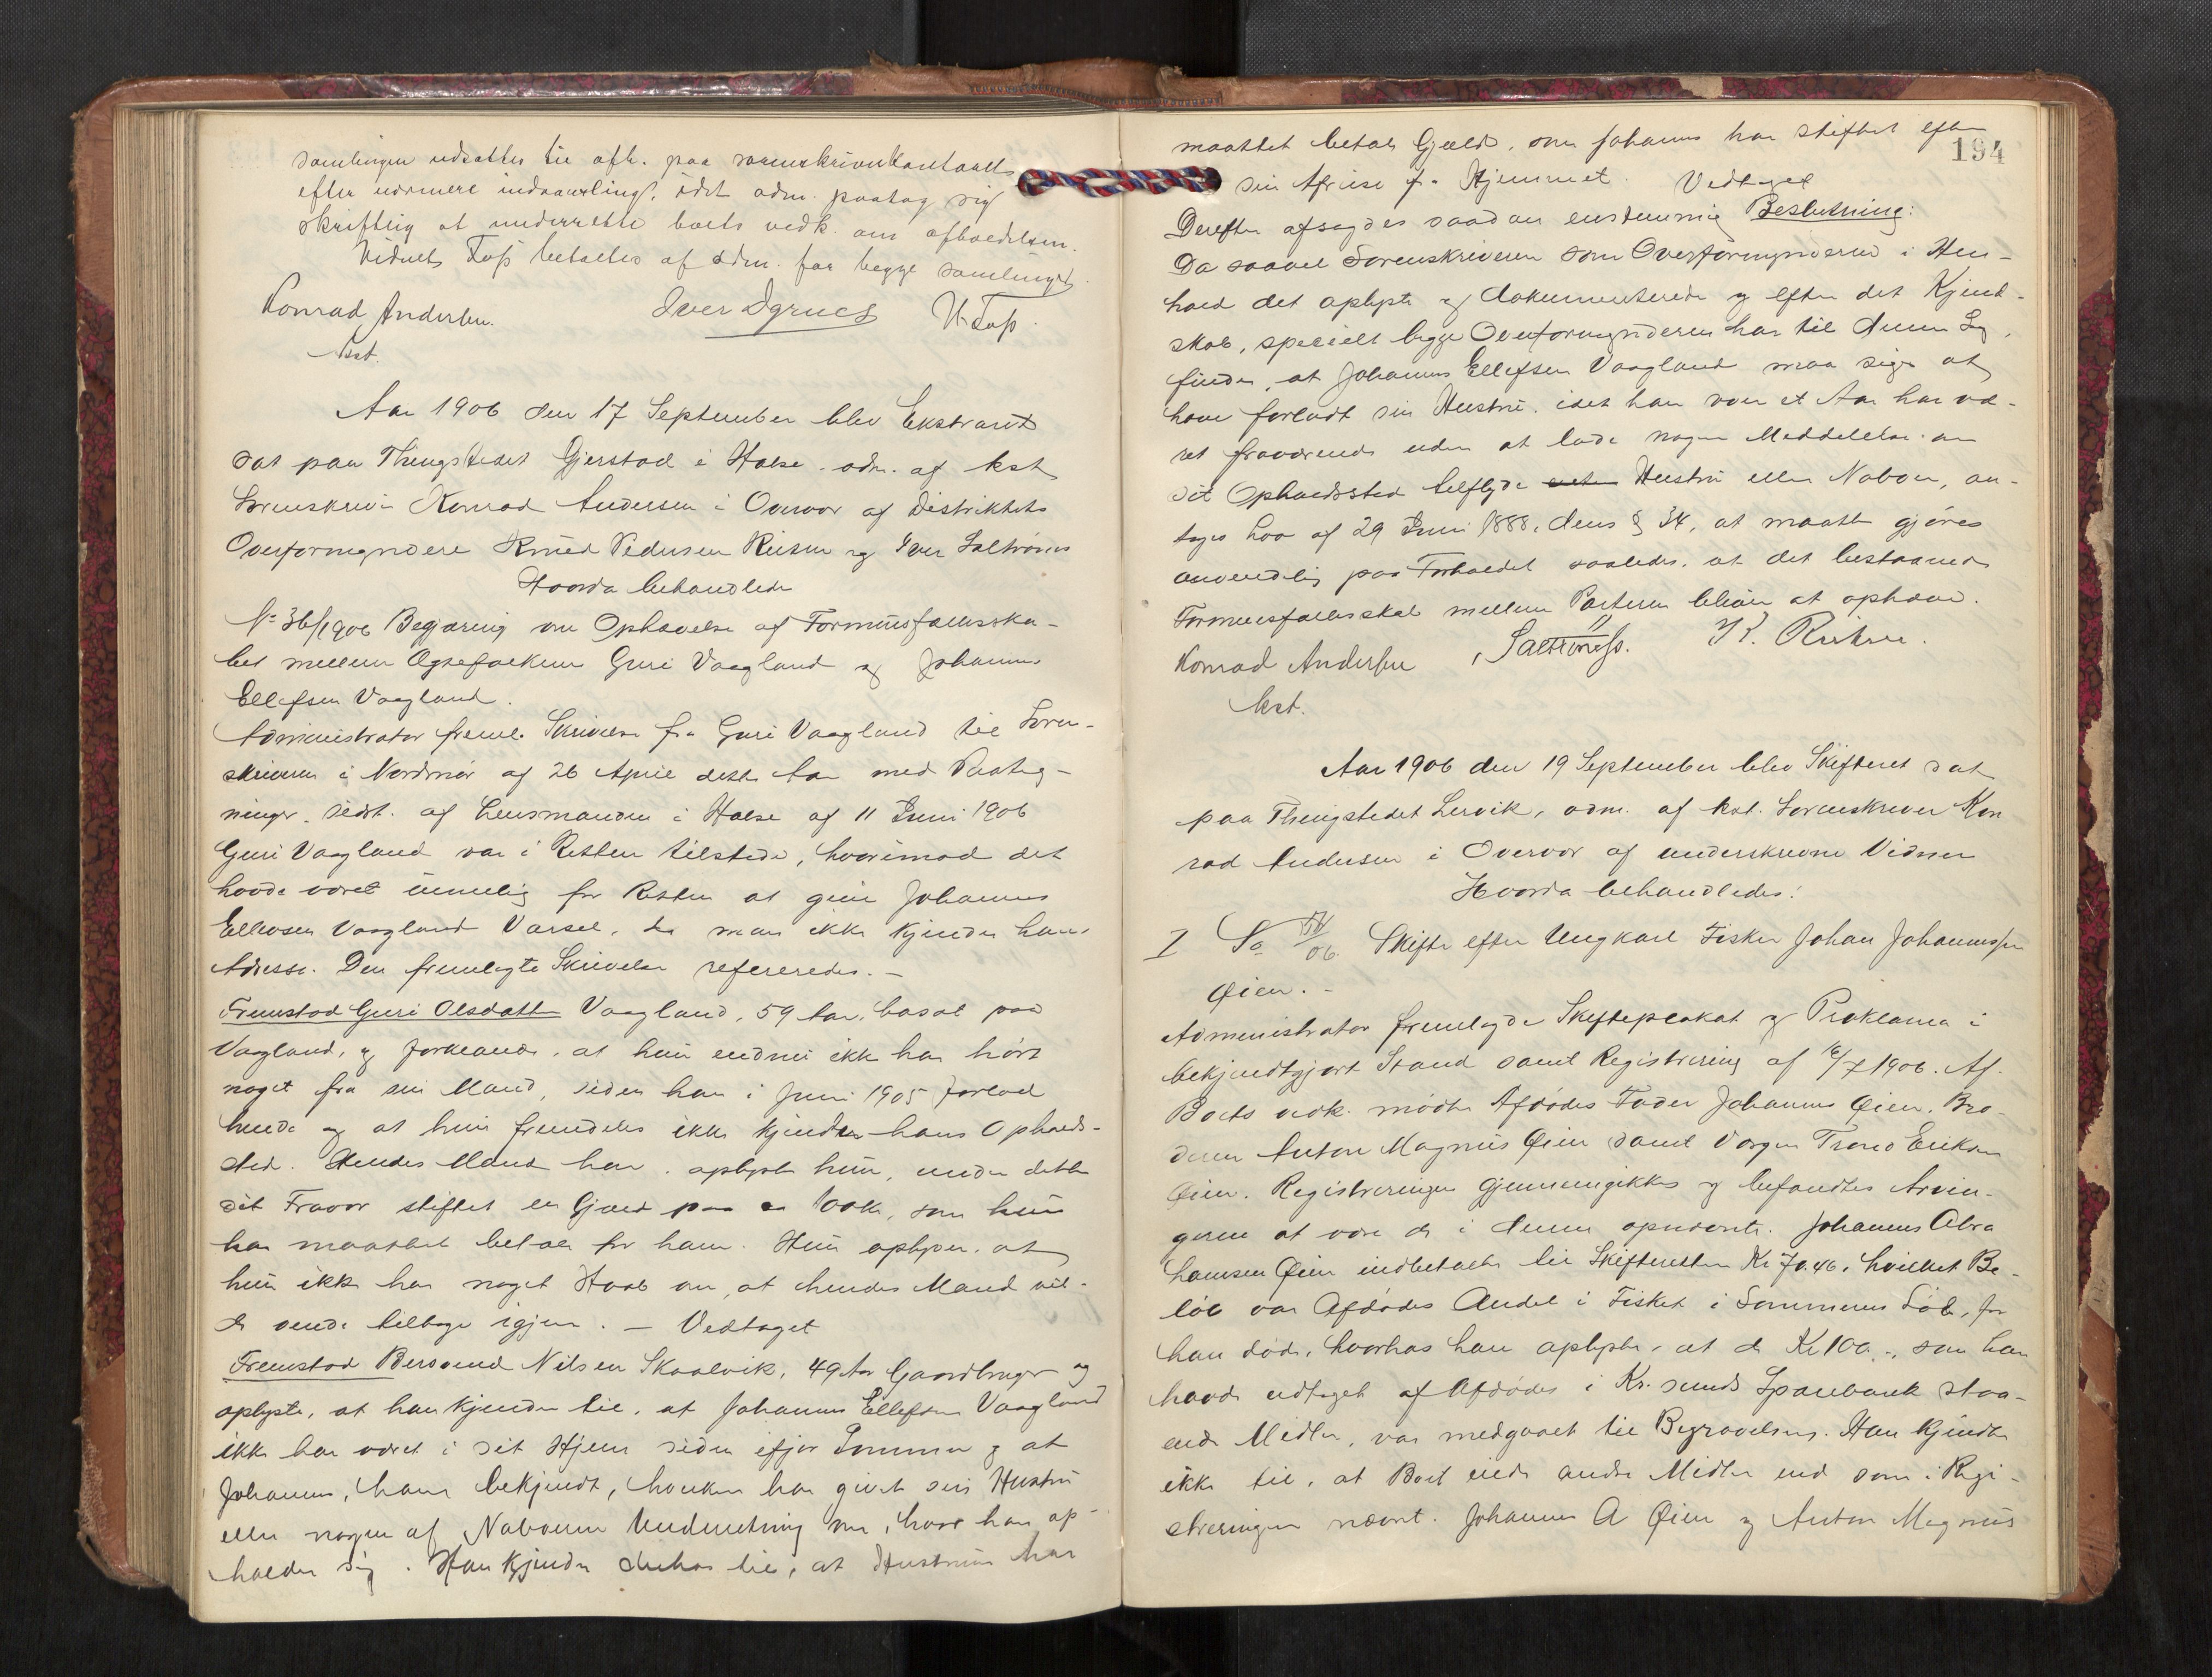 samlingen udsattes til afh. paa sorenskriverkontoret
efter nærmere indvarsling, idet adm. paatog sig
skriftlig at underrette boets vedk. om afholdelsen.
Vidnet Foss betaltes af adm. for begge samlinger.
Konrad Andersen. Iver H. Foss.
kst.
Aar 1906 den 17 September blev Ekstraret
sat paa Thingstedet Gjerstad i Halse. adm. af kst
Sorenskriver Konrad Andersen i Overvær af Distriktets
Overformyndere Knud Pedersen Reiten og Iver Saltrønes
Hvorda behandledes
No 36/1906 Begjæring om Ophævelse af Formuesfællesska-
bet mellem Ægtefolkene Guri Vaagland og Johannes
Ellefsen Vaagland.
Administrator freml. Skrivelse fra Guri Vaagland til Soren-
skriveren i Nordmør af 26 April dette Aar med Paateg-
ninger, sidst. af Lensmanden i Halse af 11 Juni 1906
Guri Vaagland var i Retten tilstede, hvorimod det
havde været umulig for Retten at give Johannes
Ellevsen Vaagland Varsel, da man ikke kjender hans
Adresse. Den fremlagte Skrivelse refereredes. -
Fremstod Guri Olsdatter Vaagland, 59 Aar, bosat paa
Vaagland, og forklarede, at hun endnu ikke har hørt
noget fra sin Mand, siden han i Juni 1905 forlod
hende og at hun fremdeles ikke kjender hans Opholds-
sted. Hendes Mand har, oplyste hun, under dette
sit Fravær stiftet en Gjæld paa ca 100 Kr, som hun
har maattet betale for ham. Hun oplyser, at
hun ikke har noget Haab om, at hendes Mand vil-
de vende tilbage igjen. - Vedtaget
Fremstod Bersvend Nilsen Skaalvik, 49 Aar Gaardbruger og
oplyste, at han kjender til, at Johannes Ellefsen Vaagland
ikke har været i sit Hjem siden ifjor Sommer og at
Johannes, ham bekjendt, hverken har givet sin Hustru
eller nogen af Naboerne Underretning om, hvor han op-
holder sig. Han kjender derhos til, at Hustruen har
194
maattet betale Gjæld, som Johannes har stiftet efter
sin Afreise fra Hjemmet. Vedtaget
Derefter afsagdes saadan enstemmig Beslutning:
Da saavel Sorenskriveren som Overformynderne i Hen-
hold det oplyste og dokumenterede og efter det Kjend-
skab, specielt begge Overformynderne har til denne Sag,
finder, at Johannes Ellefsen Vaagland maa siges at
have forladt sin Hustru, idet han over et Aar har væ-
ret fraværende uden at lade nogen Meddelelse om
sit Opholdssted tilflyde Hustru eller Naboer, an-
tages Lov af 29 Juni 1888, dens § 34, at maatte gjøres
anvendelig paa Forholdet saaledes, at det bestaaende
Formuesfællesskab mellem Parterne bliver at ophæve.
Konrad Andersen I Saltrønes. K P. Reiten.
kst.
Aar 1906 den 19 September blev Skifteret sat
paa Thingstedet Lervik, adm. af kst. Sorenskriver Kon
rad Andersen i Overvær af underskrevne Vidner
Hvorda behandledes:
I No 06. Skifte efter Ungkarl Fisker Johan Johannessen
Øien. -
Administrator fremlagde Skifteplakat og Proklama i
bekjendtgjort Stand samt Registrering af 16/7 1906. Af
Boets vedk. mødte Afdødes Fader Johannes Øien, Bro-
deren Anton Magnus Øien samt Værgen Trond Eriksen
Øien. Registreringen gjennemgikkes og befandtes Arvin-
gerne at være de i denne opnævnte. Johannes Abra
hamsen Øien indbetalte til Skifteretten Kr 70.46, hvilket Be-
løb var Afdødes Andel i Fisket i Sommerens Løb, før
han døde, hvorhos han oplyste, at de Kr 100 -, som han
havde udtaget af Afdødes i Kr. sunds Sparebank staa-
ende Midler, var medgaaet til Begravelsen. Han kjendte
ikke til, at Boet eiede andre Midler end som i Regi-
streringen nævnt. Johannes A Øien og Anton Magnus